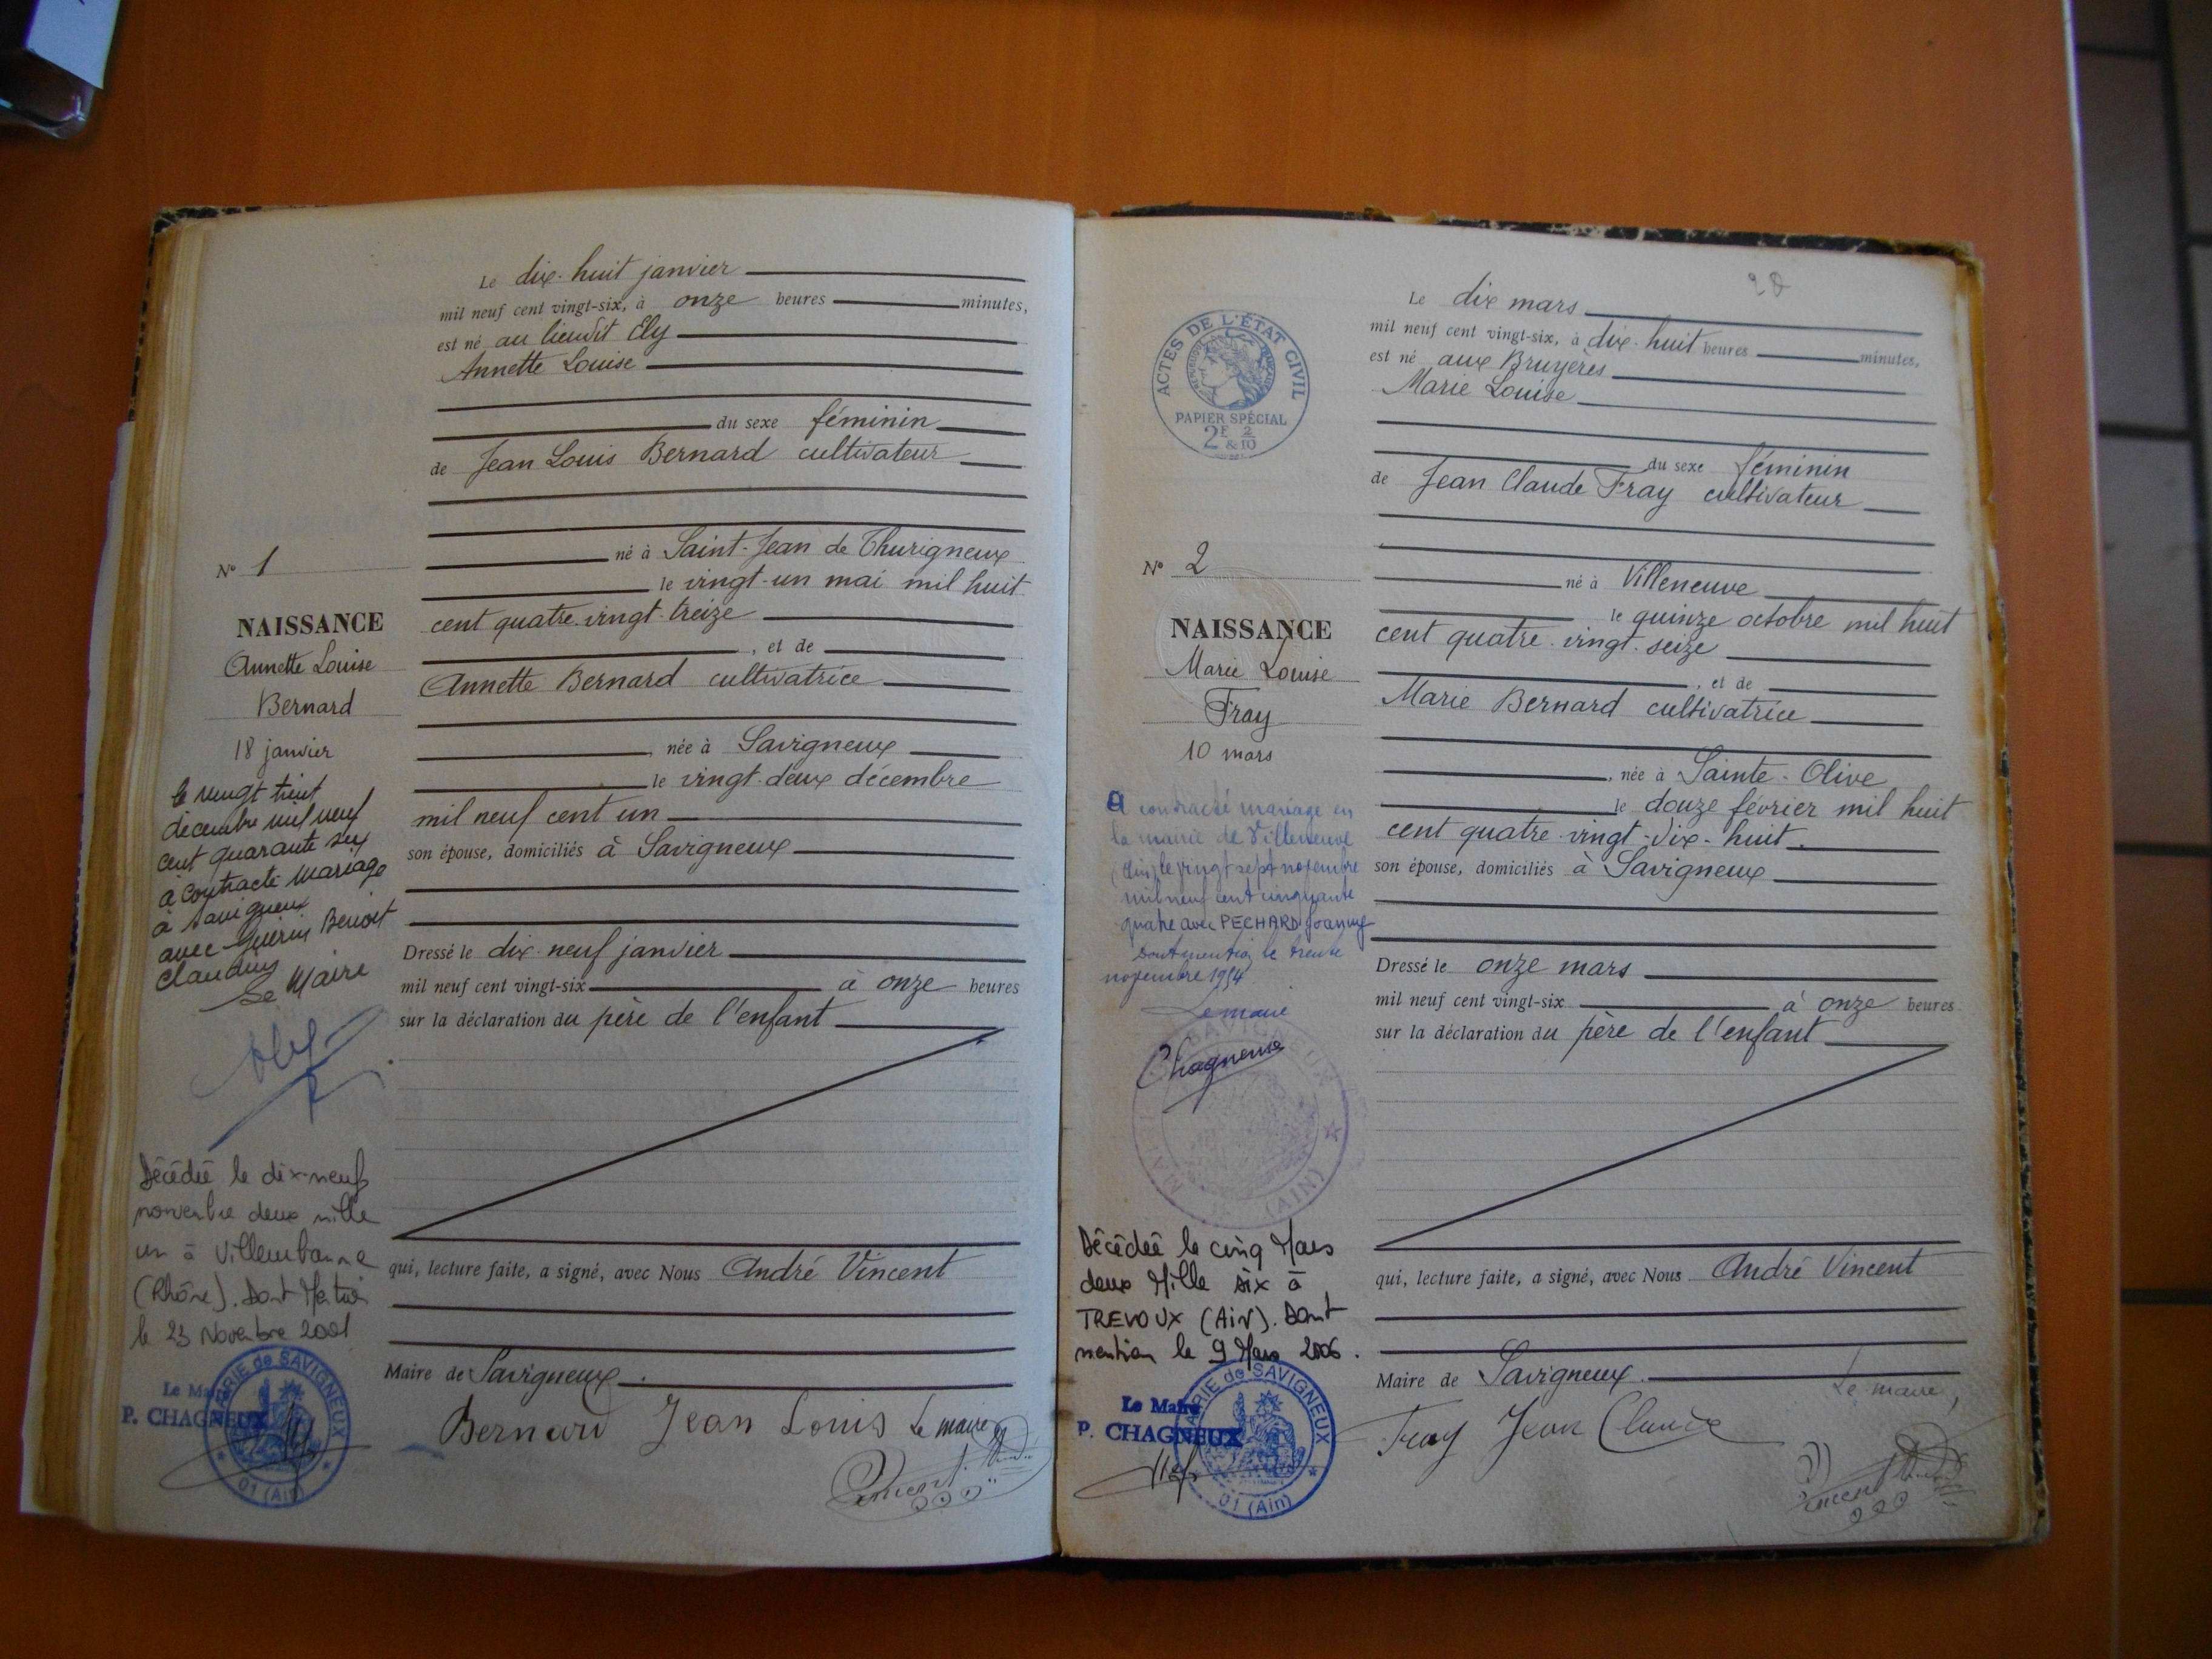 Le dix-huit janvier
mil neuf cent vingt-six, à onze heures minutes,
est né au lieudit Ely
Annette Louise
du sexe féminin
de Jean Louis Bernard cultivateur
né à Saint-Jean de Thurigneux
le vingt-un mai mil huit
cent quatre-vingt-treize
, et de
Annette Bernard cultivatrice
, née à Savigneux
le vingt-deux décembre
mil neuf cent un
son épouse, domiciliés à Savigneux
Dressé le dix-neuf janvier
mil neuf cent vingt-six à onze heures
sur la déclaration du père de l'enfant
qui, lecture faite, a signé, avec Nous André Vincent
Maire de Savigneux.
Bernard Jean Louis Le maire
Vincent
N° 1
NAISSANCE
Annette Louise
Bernard
18 janvier
le vingt
décembre mil neuf
cent quarante six
a contracté mariage
à Savigneux
avec Guérin Benoit
Claudius
Le Maire
Décédée le dix-neuf
novembre deux mille
un à Villeurbanne
(Rhône). Dont Mention
le 23 Novembre 2001
Le Maire
P. CHAGNEUX
MAIRIE de SAVIGNEUX
01 (Ain)
28
Le dix mars
mil neuf cent vingt-six, à dix-huit heures minutes,
est né aux Bruyères
Marie Louise
du sexe féminin
de Jean Claude Fray cultivateur
né à Villeneuve
le quinze octobre mil huit
cent quatre-vingt-seize
, et de
Marie Bernard cultivatrice
, née à Sainte-Olive
le douze février mil huit
cent quatre-vingt-dix-huit.
son épouse, domiciliés à Savigneux
Dressé le onze mars
mil neuf cent vingt-six à onze heures
sur la déclaration du père de l'enfant
qui, lecture faite, a signé, avec Nous André Vincent
Maire de Savigneux.
Le maire,
Fray Jean Claude
Vincent
ACTES DE L'ÉTAT CIVIL
PAPIER SPÉCIAL
2F & 2/10
N° 2
NAISSANCE
Marie Louise
Fray
10 mars
A contracté mariage en
la mairie de Villeneuve
(Ain) le vingt sept novembre
mil neuf cent cinquante
quatre avec PECHARD Joanny
Dont mention le trente
novembre 1954
Le maire
Chagneux
MAIRIE SAVIGNEUX
(AIN)
Décédée le cinq Mars
deux Mille six à
TREVOUX (Ain). Dont
mention le 9 Mars 2006.
Le Maire
P. CHAGNEUX
MAIRIE de SAVIGNEUX
01 (Ain)